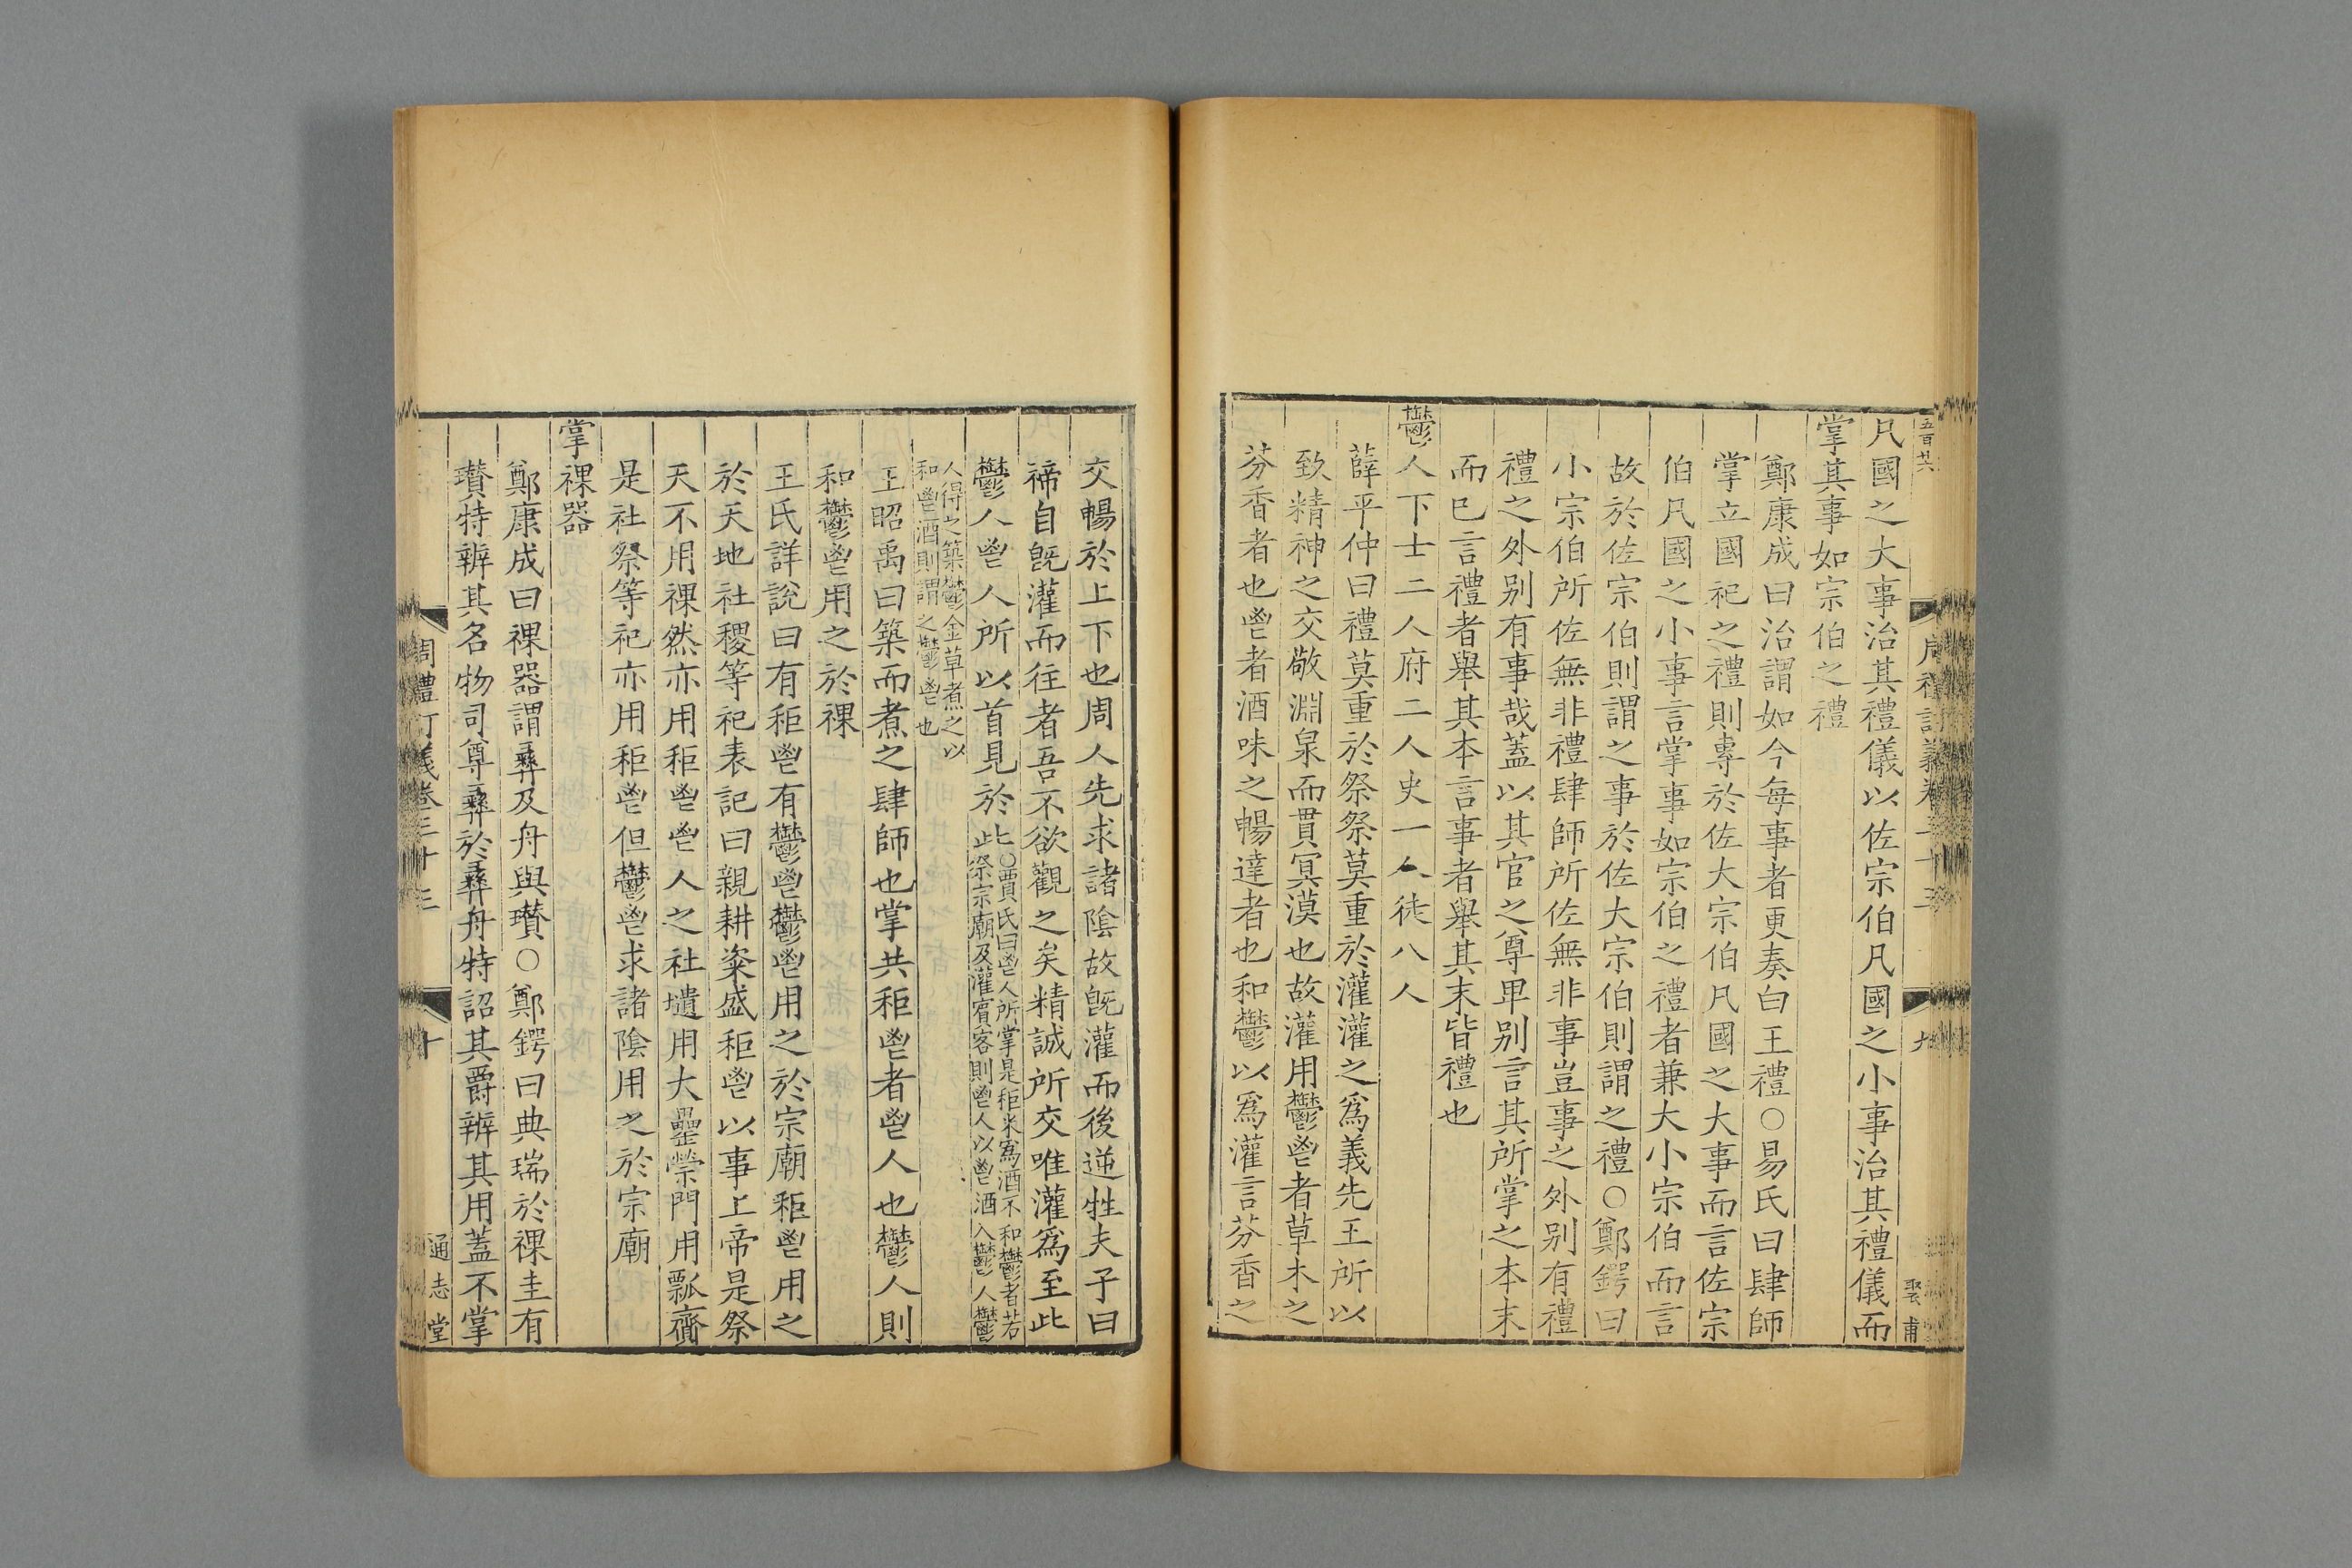 五百廿六
凡國之大事治其禮儀以佐宗伯凡國之小事治其禮儀而
掌其事如宗伯之禮
鄭康成曰治謂如今每事者更奏白王禮○易氏曰肆師
掌立國祀之禮則專於佐大宗伯凡國之大事而言佐宗
伯凡國之小事言掌事如宗伯之禮者兼大小宗伯而言
故於佐宗伯則謂之事於佐大宗伯則謂之禮○鄭鍔曰
小宗伯所佐無非禮肆師所佐無非事豈事之外別有禮
禮之外別有事哉蓋以其官之尊卑別言其所掌之本末
而已言禮者舉其本言事者舉其末皆禮也
鬱人下士二人府二人史一人徒八人
薛平仲曰禮莫重於祭祭莫重於灌灌之爲義先王所以
致精神之交敬淵泉而貫冥漠也故灌用鬱鬯者草木之
芬香者也鬯者酒味之暢達者也和鬱以爲灌言芬香之
周禮訂義卷三十三
九
聖甫
交暢於上下也周人先求諸陰故旣灌而後逆牲夫子曰
禘自旣灌而往者吾不欲觀之矣精誠所交唯灌爲至此
鬱人鬯人所以首見於此○賈氏曰鬯人所掌是秬米爲酒不和鬱者若
祭宗廟及灌賓客則鬯人以鬯酒入鬱人鬱
人得之築鬱金草煮之以
和鬯酒則謂之鬱鬯也
王昭禹曰築而煮之肆師也掌共秬鬯者鬯人也鬱人則
和鬱鬯用之於祼
王氏詳說曰有秬鬯有鬱鬯鬱鬯用之於宗廟秬鬯用之
於天地社稷等祀表記曰親耕粢盛秬鬯以事上帝是祭
天不用祼然亦用秬鬯鬯人之社壝用大罍禜門用瓢齎
是社祭等祀亦用秬鬯但鬱鬯求諸陰用之於宗廟
掌祼器
鄭康成曰祼器謂彝及舟與瓚○鄭鍔曰典瑞於祼圭有
瓚特辨其名物司尊彝於彝舟特詔其爵辨其用蓋不掌
周禮訂義卷三十三
十
通志堂